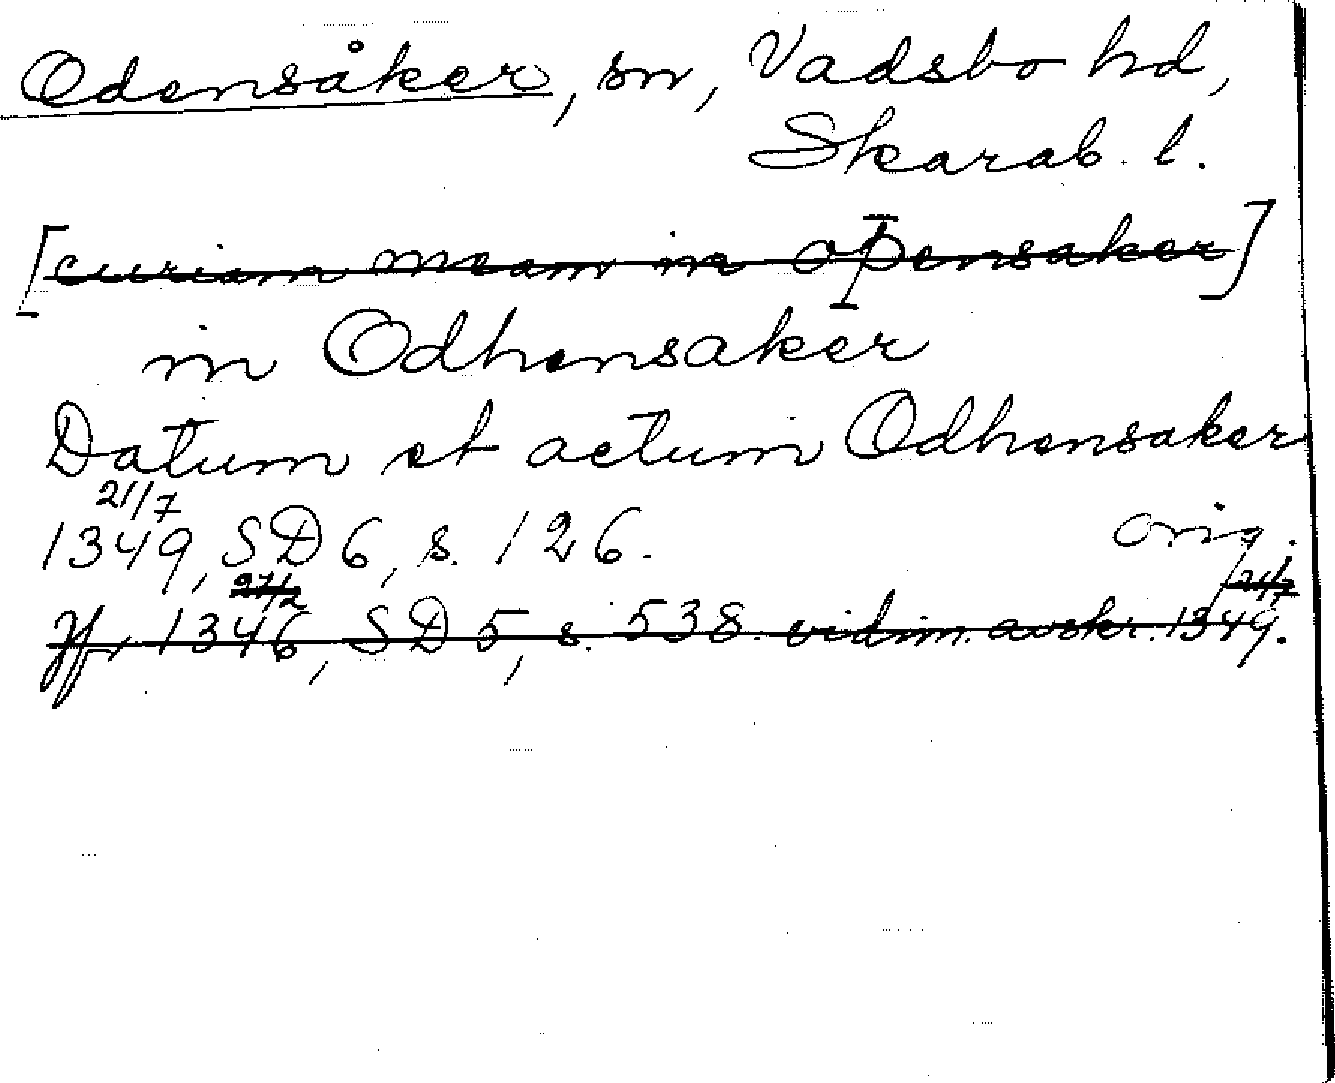 Odensåker, sn, Vadsbo hd,
Skarab. l.
[curiam meam in oþensaker]
in Odhensaker
Datum et actum Odhensaker
21/7
1349, SD 6, s. 126. orig.
27/2 21/7
Jf, 1346, SD 5, s. 538. vidim. avskr. 1349.